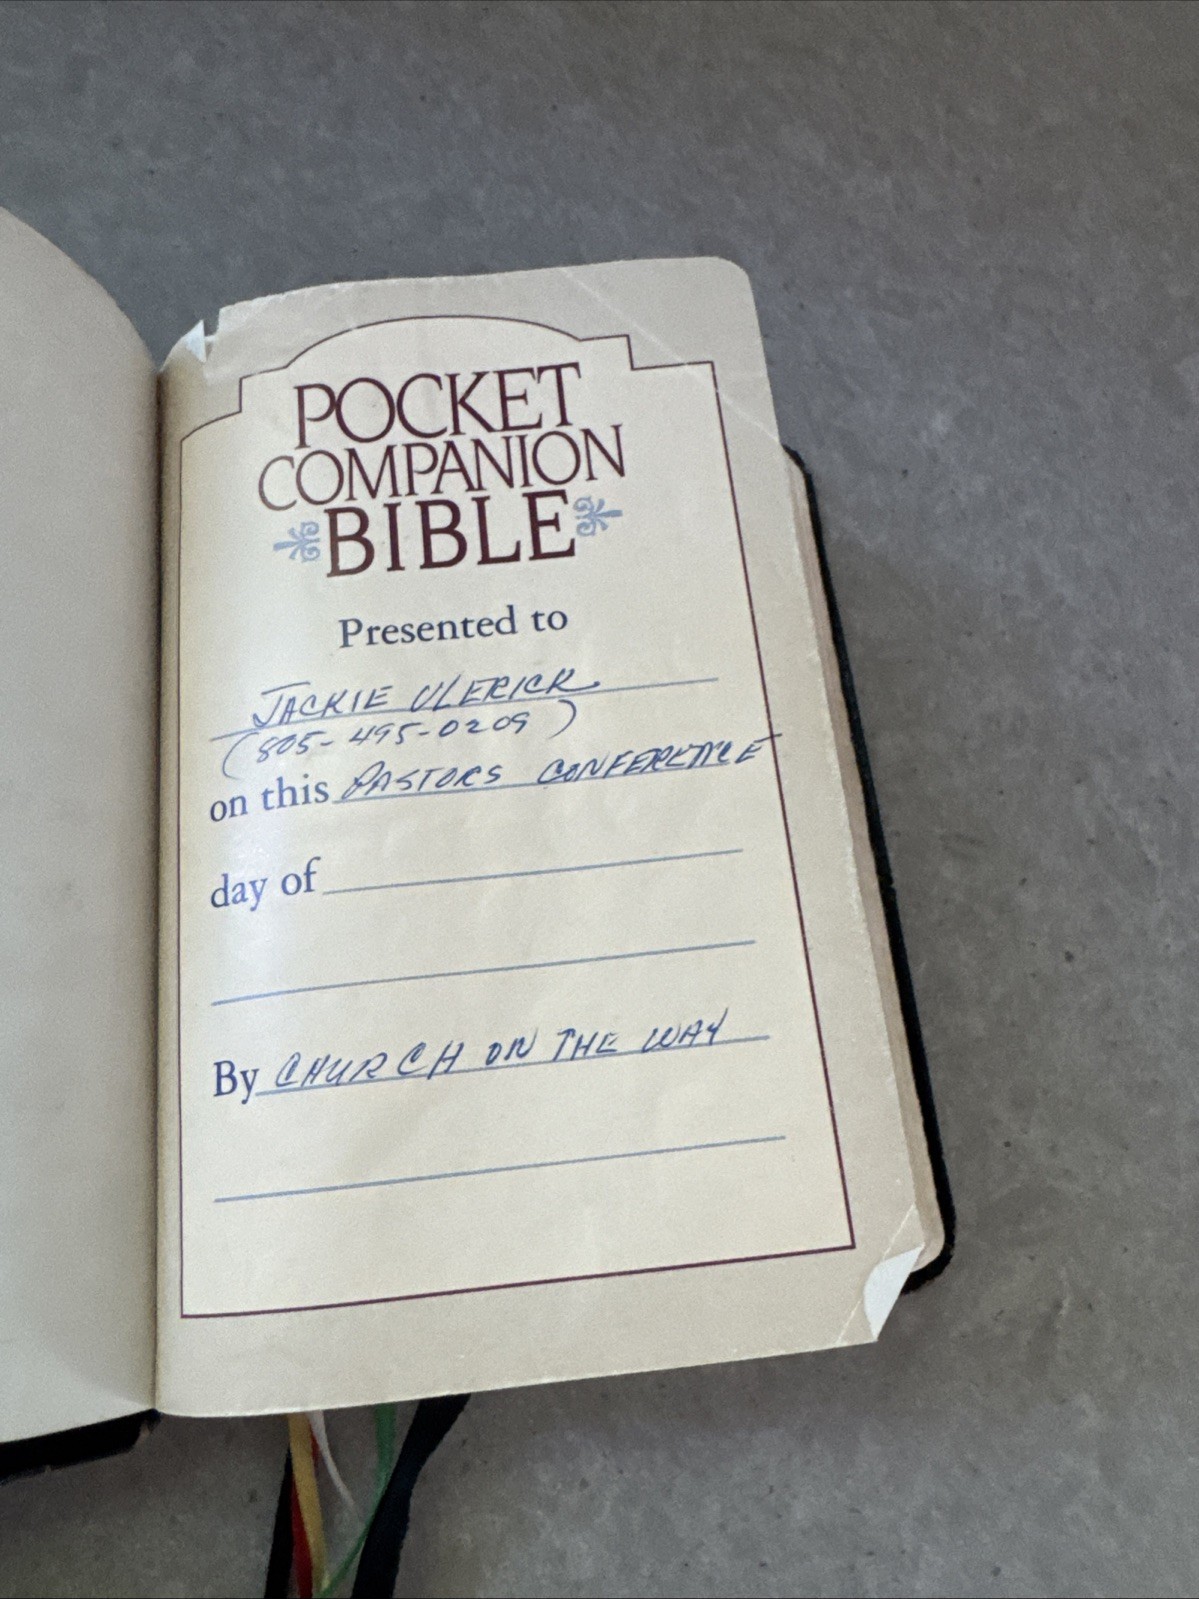 POCKET
COMPANION
BIBLE
Presented to
JACKIE ULERICK
(805-495-0209)
on this PASTORS CONFERENCE
day of
By CHURCH ON THE WAY